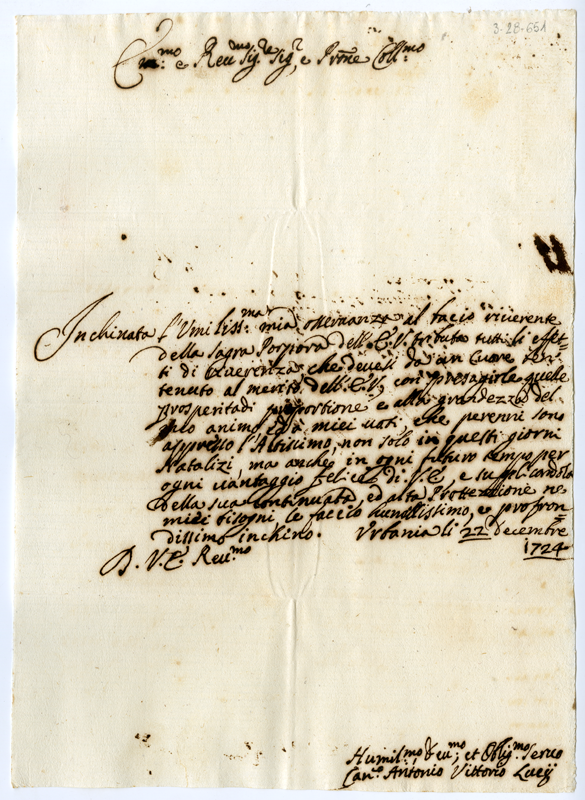 3-28-651
Em:mo e Reu:mo Sig:re Sig:r, e Prone Coll:mo
Inchinata l'Umiliss:ma mia osseruanza al bacio riuerente
della sagra Porpora dell'E.V. tributa tutti li effet-
ti di Riuerenza che deuesi da un Cuore
tenuto al merito dell'E.V., con presagirle quelle
prosperità di proportione e alla grandezza del
suo animo, ed a miei uoti, che perenni sono
appresso l'Altissimo, non solo in questi giorni
Natalizi, ma anche in ogni futuro tempo per
ogni uantaggio felice di V.E., e supplicandola
della sua continuata, ed alta Protettione ne
miei bisogni le faccio humilissimo, e profon-
dissimo inchino. Urbania li 22 decembre
1724
D. V. E. Reu:mo
Humil:mo, Deu:mo, et Oblig:mo Seruo
Can:co Antonio Vittorio Lucij